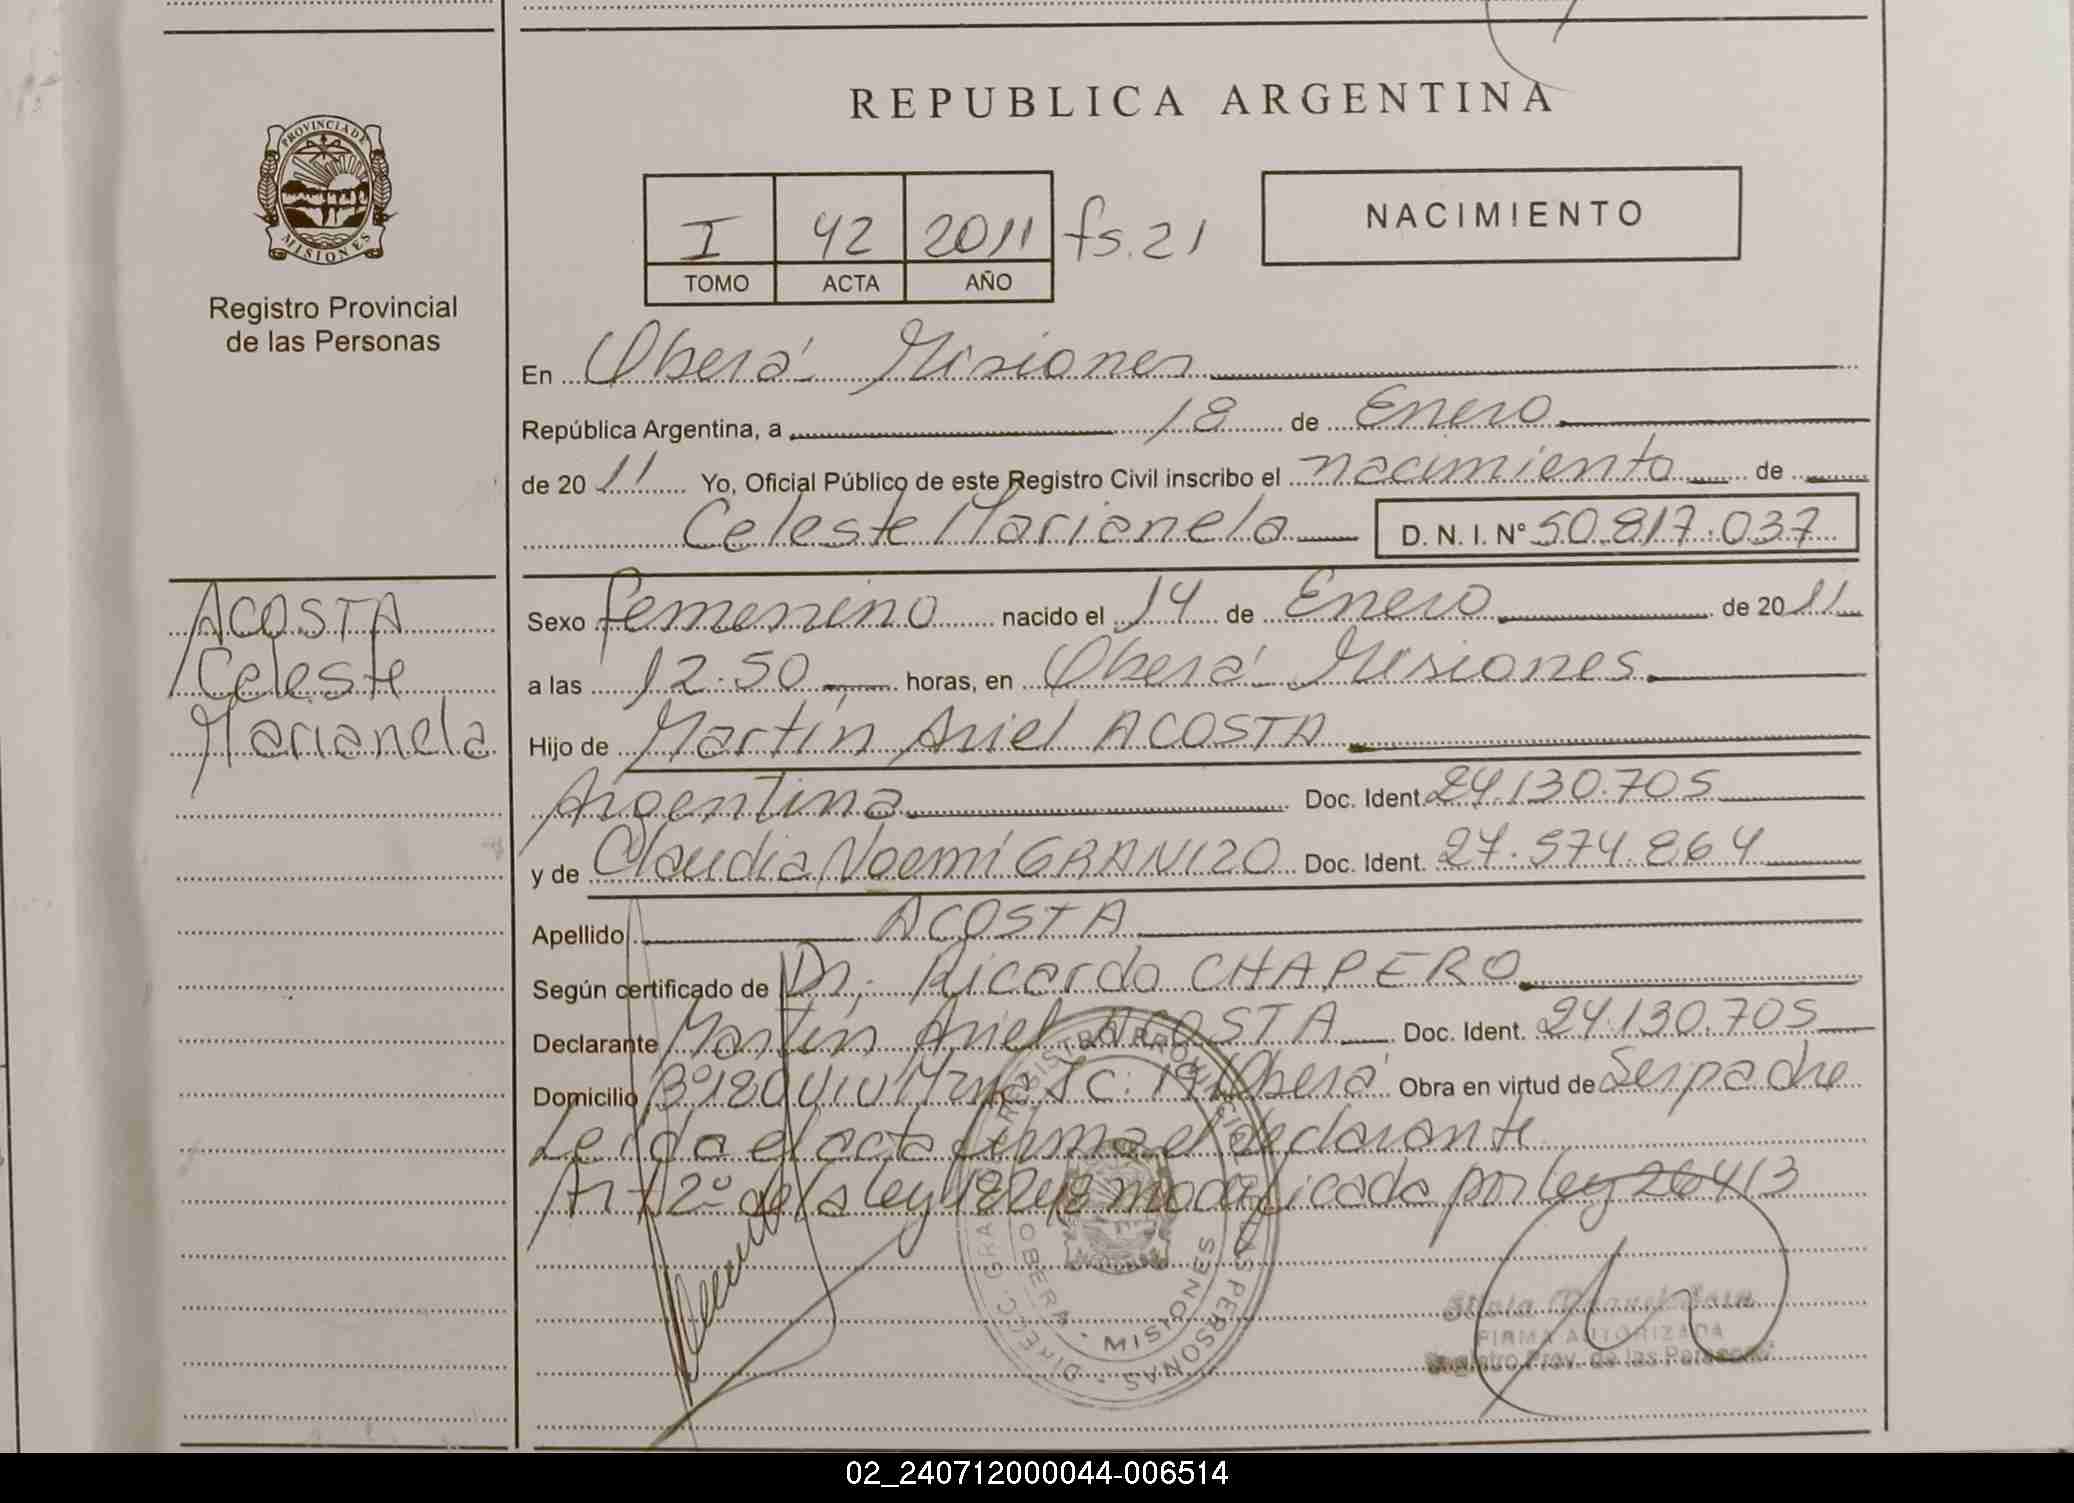 REPUBLICA ARGENTINA
PROVINCIA DE
MISIONES
Registro Provincial
de las Personas
I 42 2011 fs. 21
TOMO ACTA AÑO
NACIMIENTO
En Oberá Misiones
República Argentina, a 18 de Enero
de 20 11 Yo, Oficial Público de este Registro Civil inscribo el nacimiento de
Celeste Marianela D. N. I. N° 50.817.037
ACOSTA
Celeste
Marianela
Sexo femenino nacido el 14 de Enero de 20 11
a las 12.50 horas, en Oberá Misiones
Hijo de Martín Ariel ACOSTA
Argentina Doc. Ident. 24.130.705
y de Claudia Noemí GRANIZO Doc. Ident. 27.574.864
Apellido ACOSTA
Según certificado de Dr. Ricardo CHAPERO
Declarante Martín Ariel ACOSTA Doc. Ident. 24.130.705
Domicilio B° 180 Viv Mzna J C: 19 Oberá Obra en virtud de Ser padre
Leída el acta firma el declarante
Art 2° de la ley 18248 modificada por ley 26413
DIRECC. GRAL. REGISTRO PROVINCIAL DE LAS PERSONAS
OBERA - MISIONES
FIRMA AUTORIZADA
Registro Prov. de las Personas
02_240712000044-006514